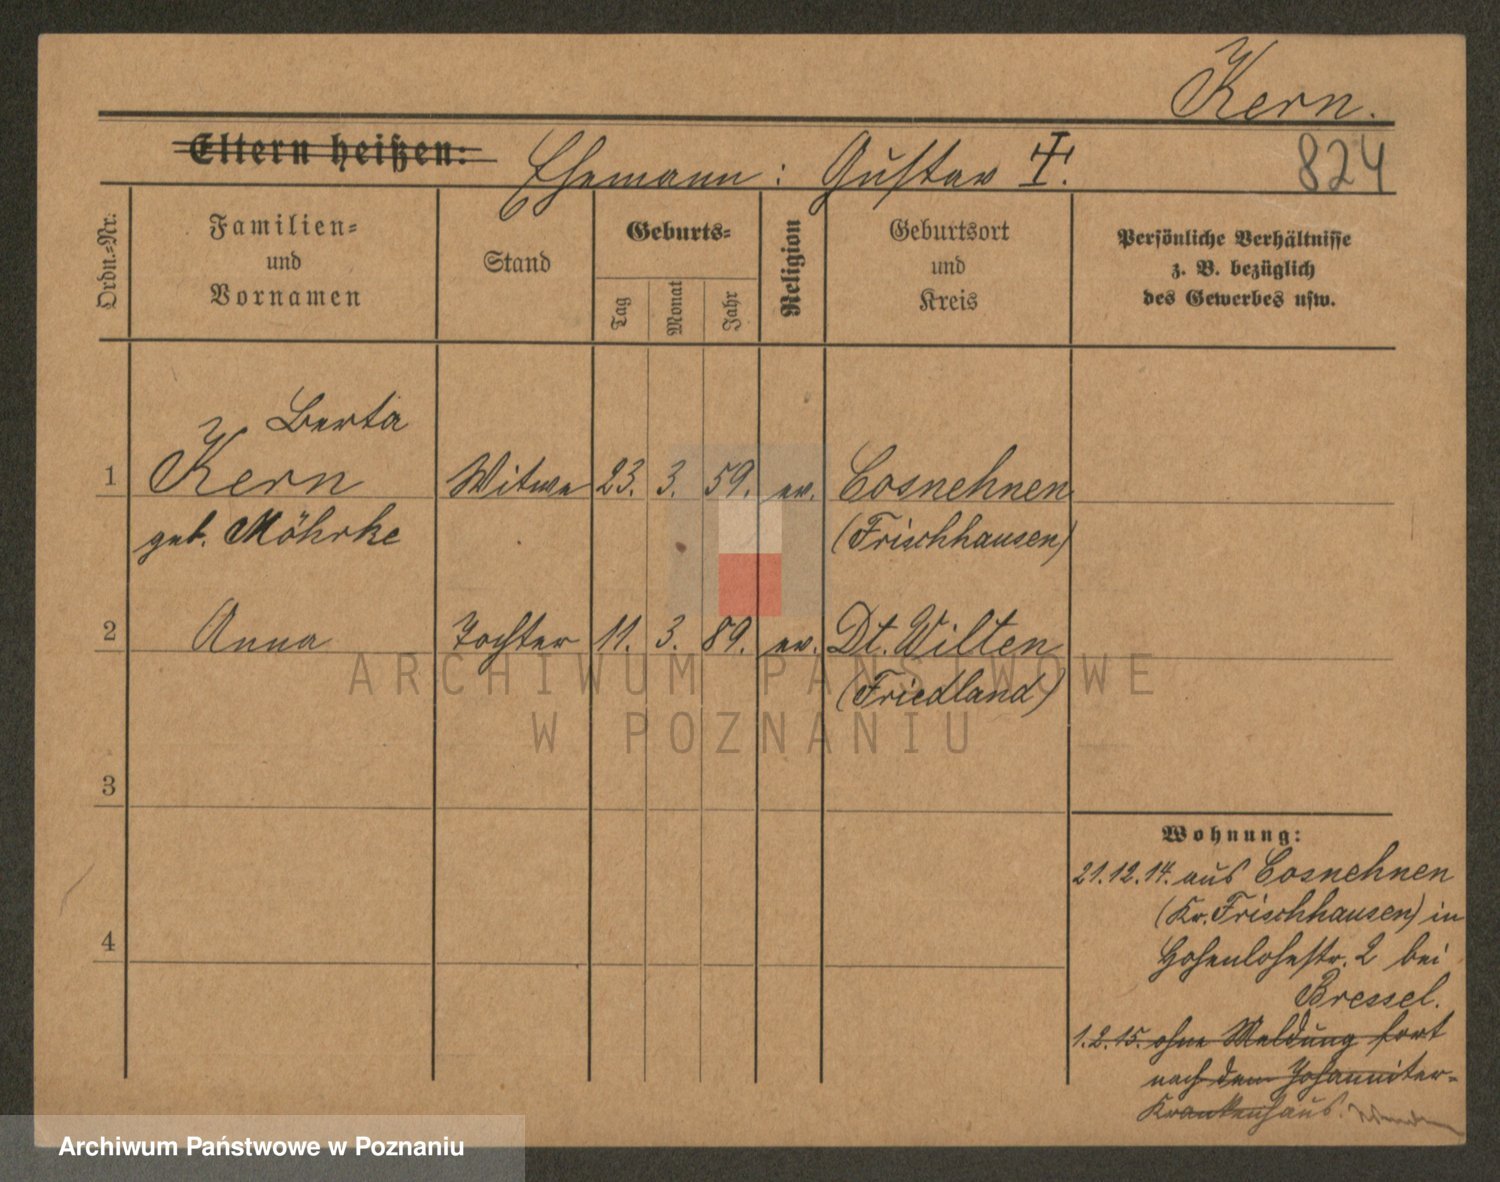 Kern.
Eltern heißen: Ehemann: Gustav †.
824
Ordn.-Nr.
Familien-
und
Vornamen
Stand
Geburts-
Tag
Monat
Jahr
Religion
Geburtsort
und
Kreis
Persönliche Verhältnisse
z. B. bezüglich
des Gewerbes usw.
Berta
1 Kern Witwe 23. 3. 59. ev. Cosnehnen
geb. Möhrke (Frischhausen)
2 Anna Tochter 11. 3. 89. ev. Dt. Wilten
(Friedland)
ARCHIWUM PAŃSTWOWE
W POZNANIU
3
4
Wohnung:
21.12.14. aus Cosnehnen
(Kr. Frischhausen) in
Hohenlohestr. 2 bei
Bressel.
1.2.15. ohne Meldung fort
nach dem Johanniter-
Krankenhaus.
Archiwum Państwowe w Poznaniu